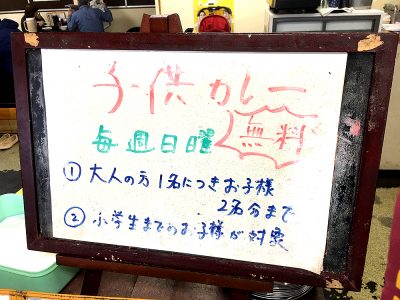 子供カレー
毎週日曜 無料
① 大人の方1名につきお子様
2名分まで
② 小学生までのお子様が対象